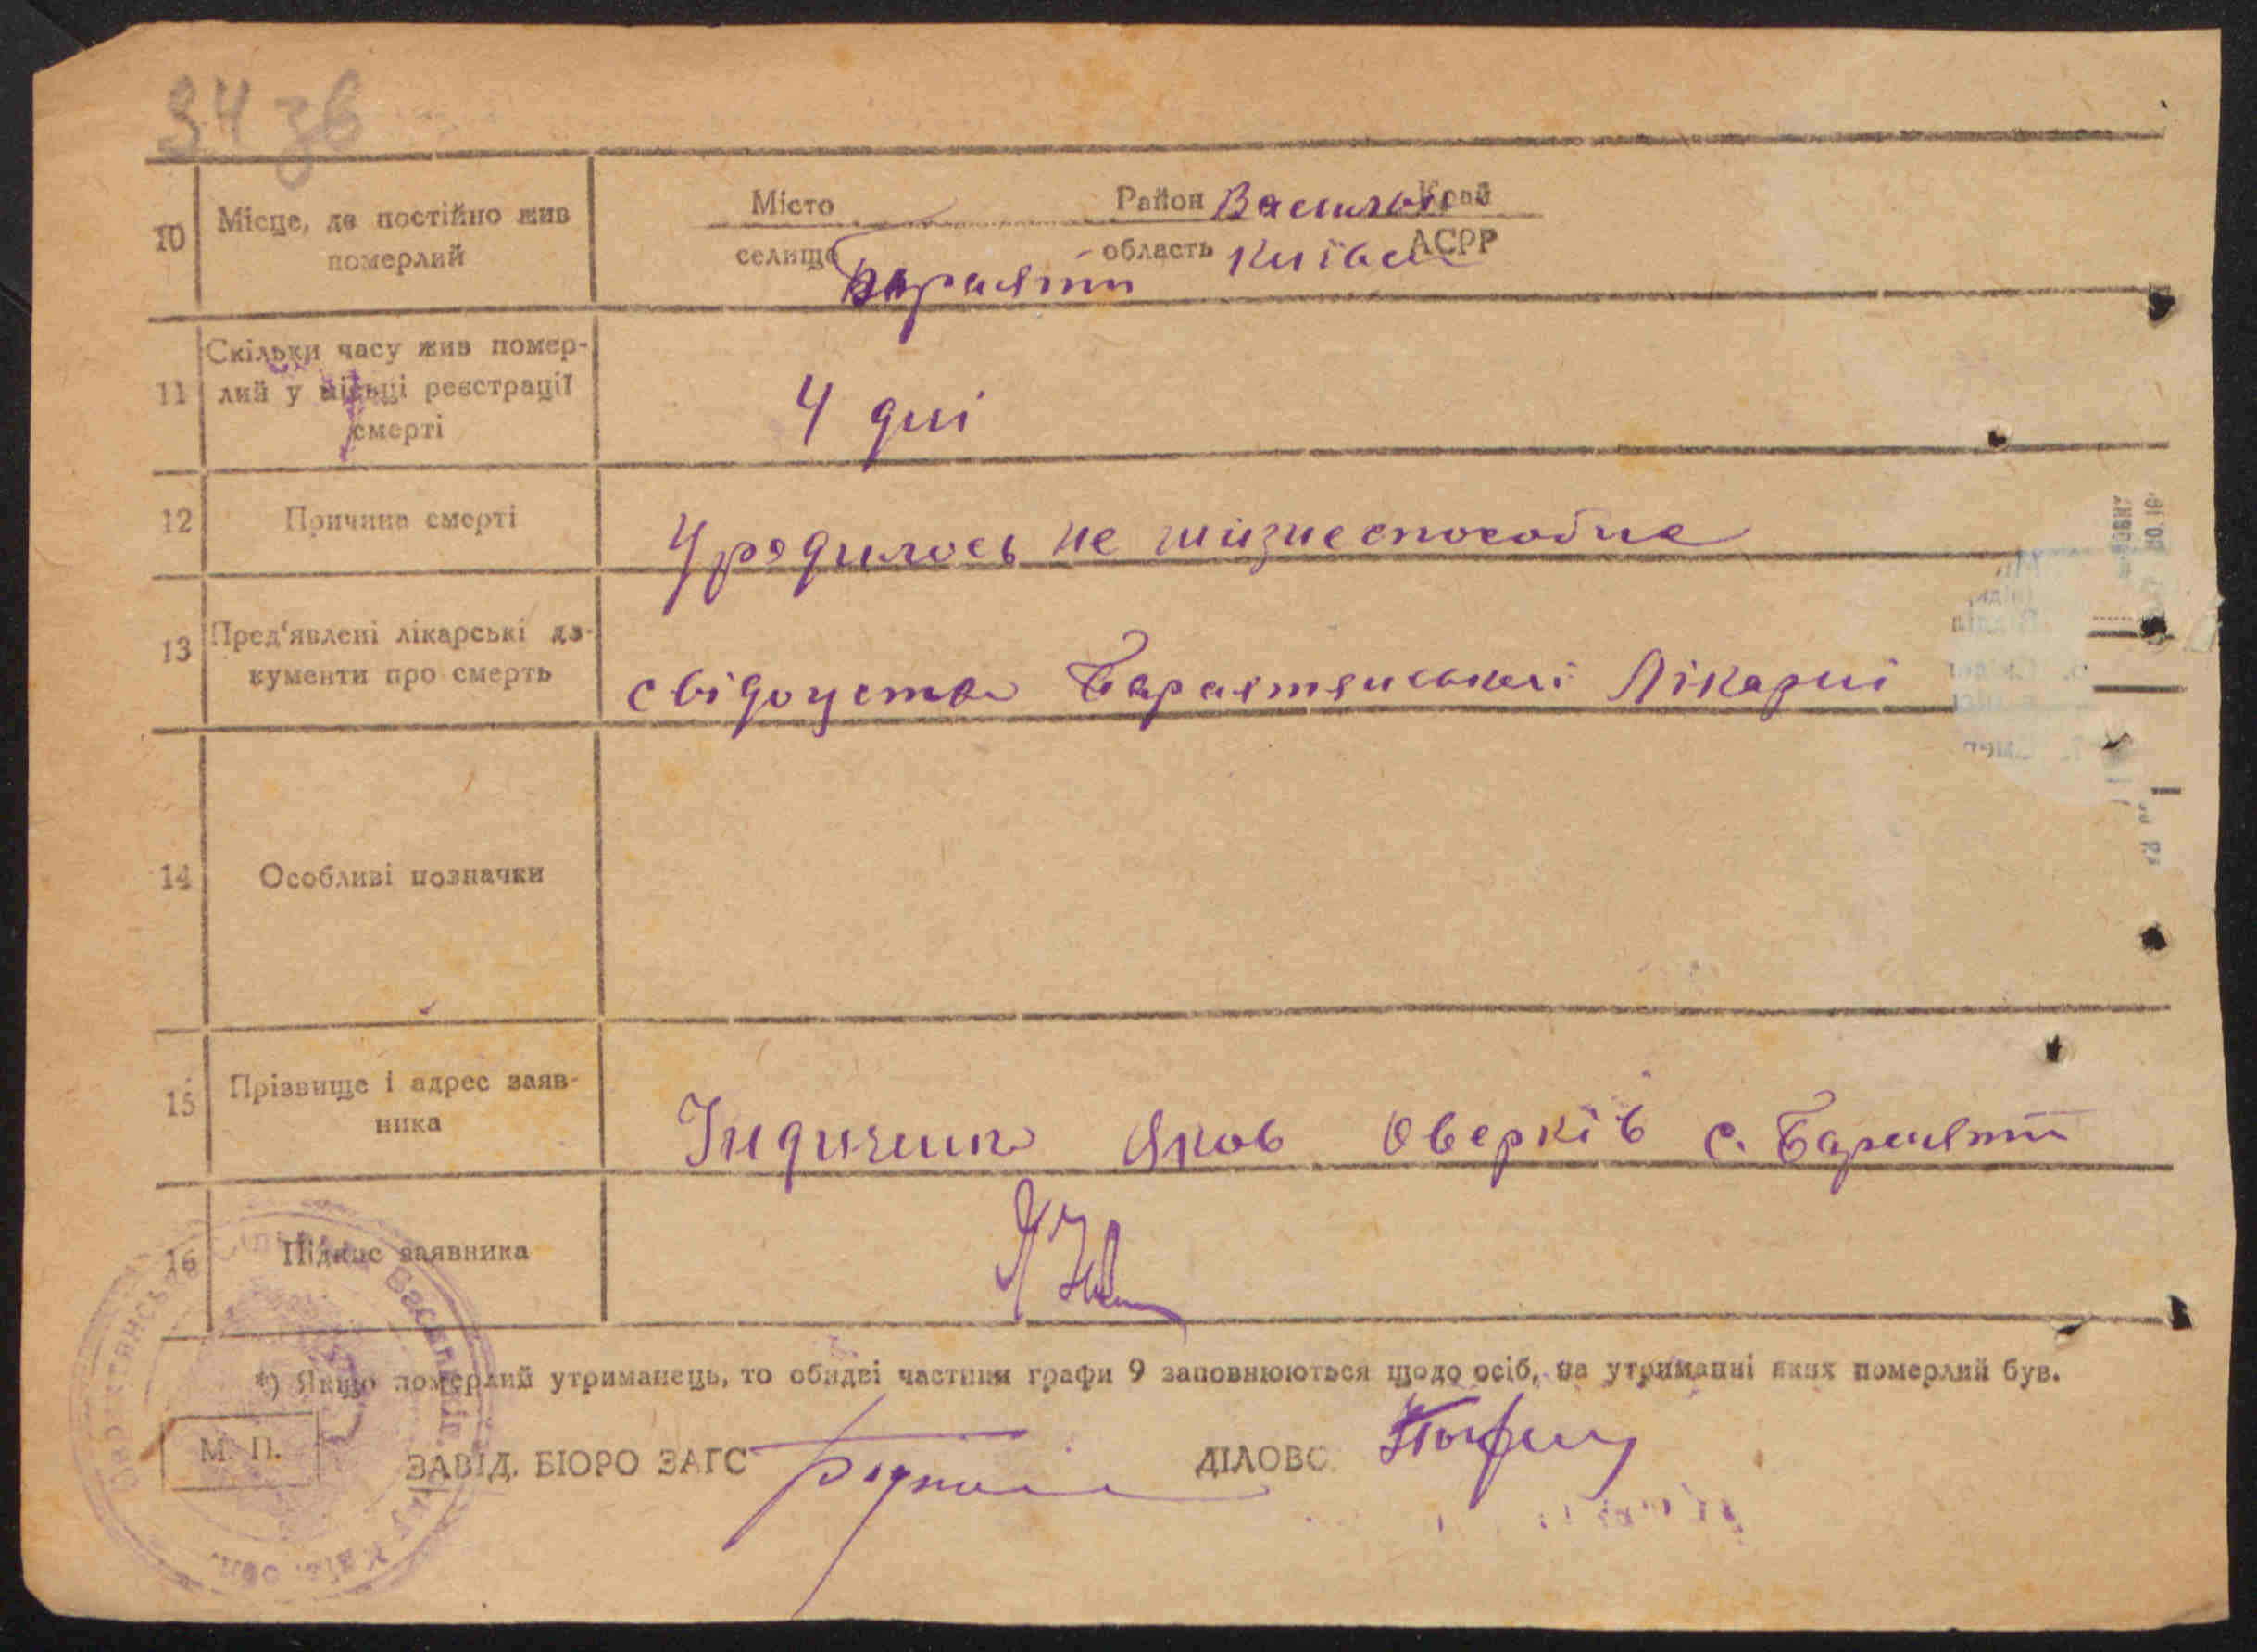 94 зв
10 Місце, де постійно жив померлий
Місто Район Васильк Край
селище Барахти область Київск АСРР
11 Скільки часу жив помер-
лий у місьці реєстрації
смерті
4 дні
12 Причина смерті
Уродилось не жізнеспособне
13 Пред'явлені лікарські до-
кументи про смерть
свідоцтво Барахтянської Лікарні
14 Особливі позначки
15 Прізвище і адрес заяв-
ника
Індиченко Яков Оверків с. Барахти
16 Підпис заявника
*) Якщо померлий утриманець, то обидві частини графи 9 заповнюються щодо осіб, на утриманні яких померлий був.
М. П.
ЗАВІД. БЮРО ЗАГС ДІЛОВС